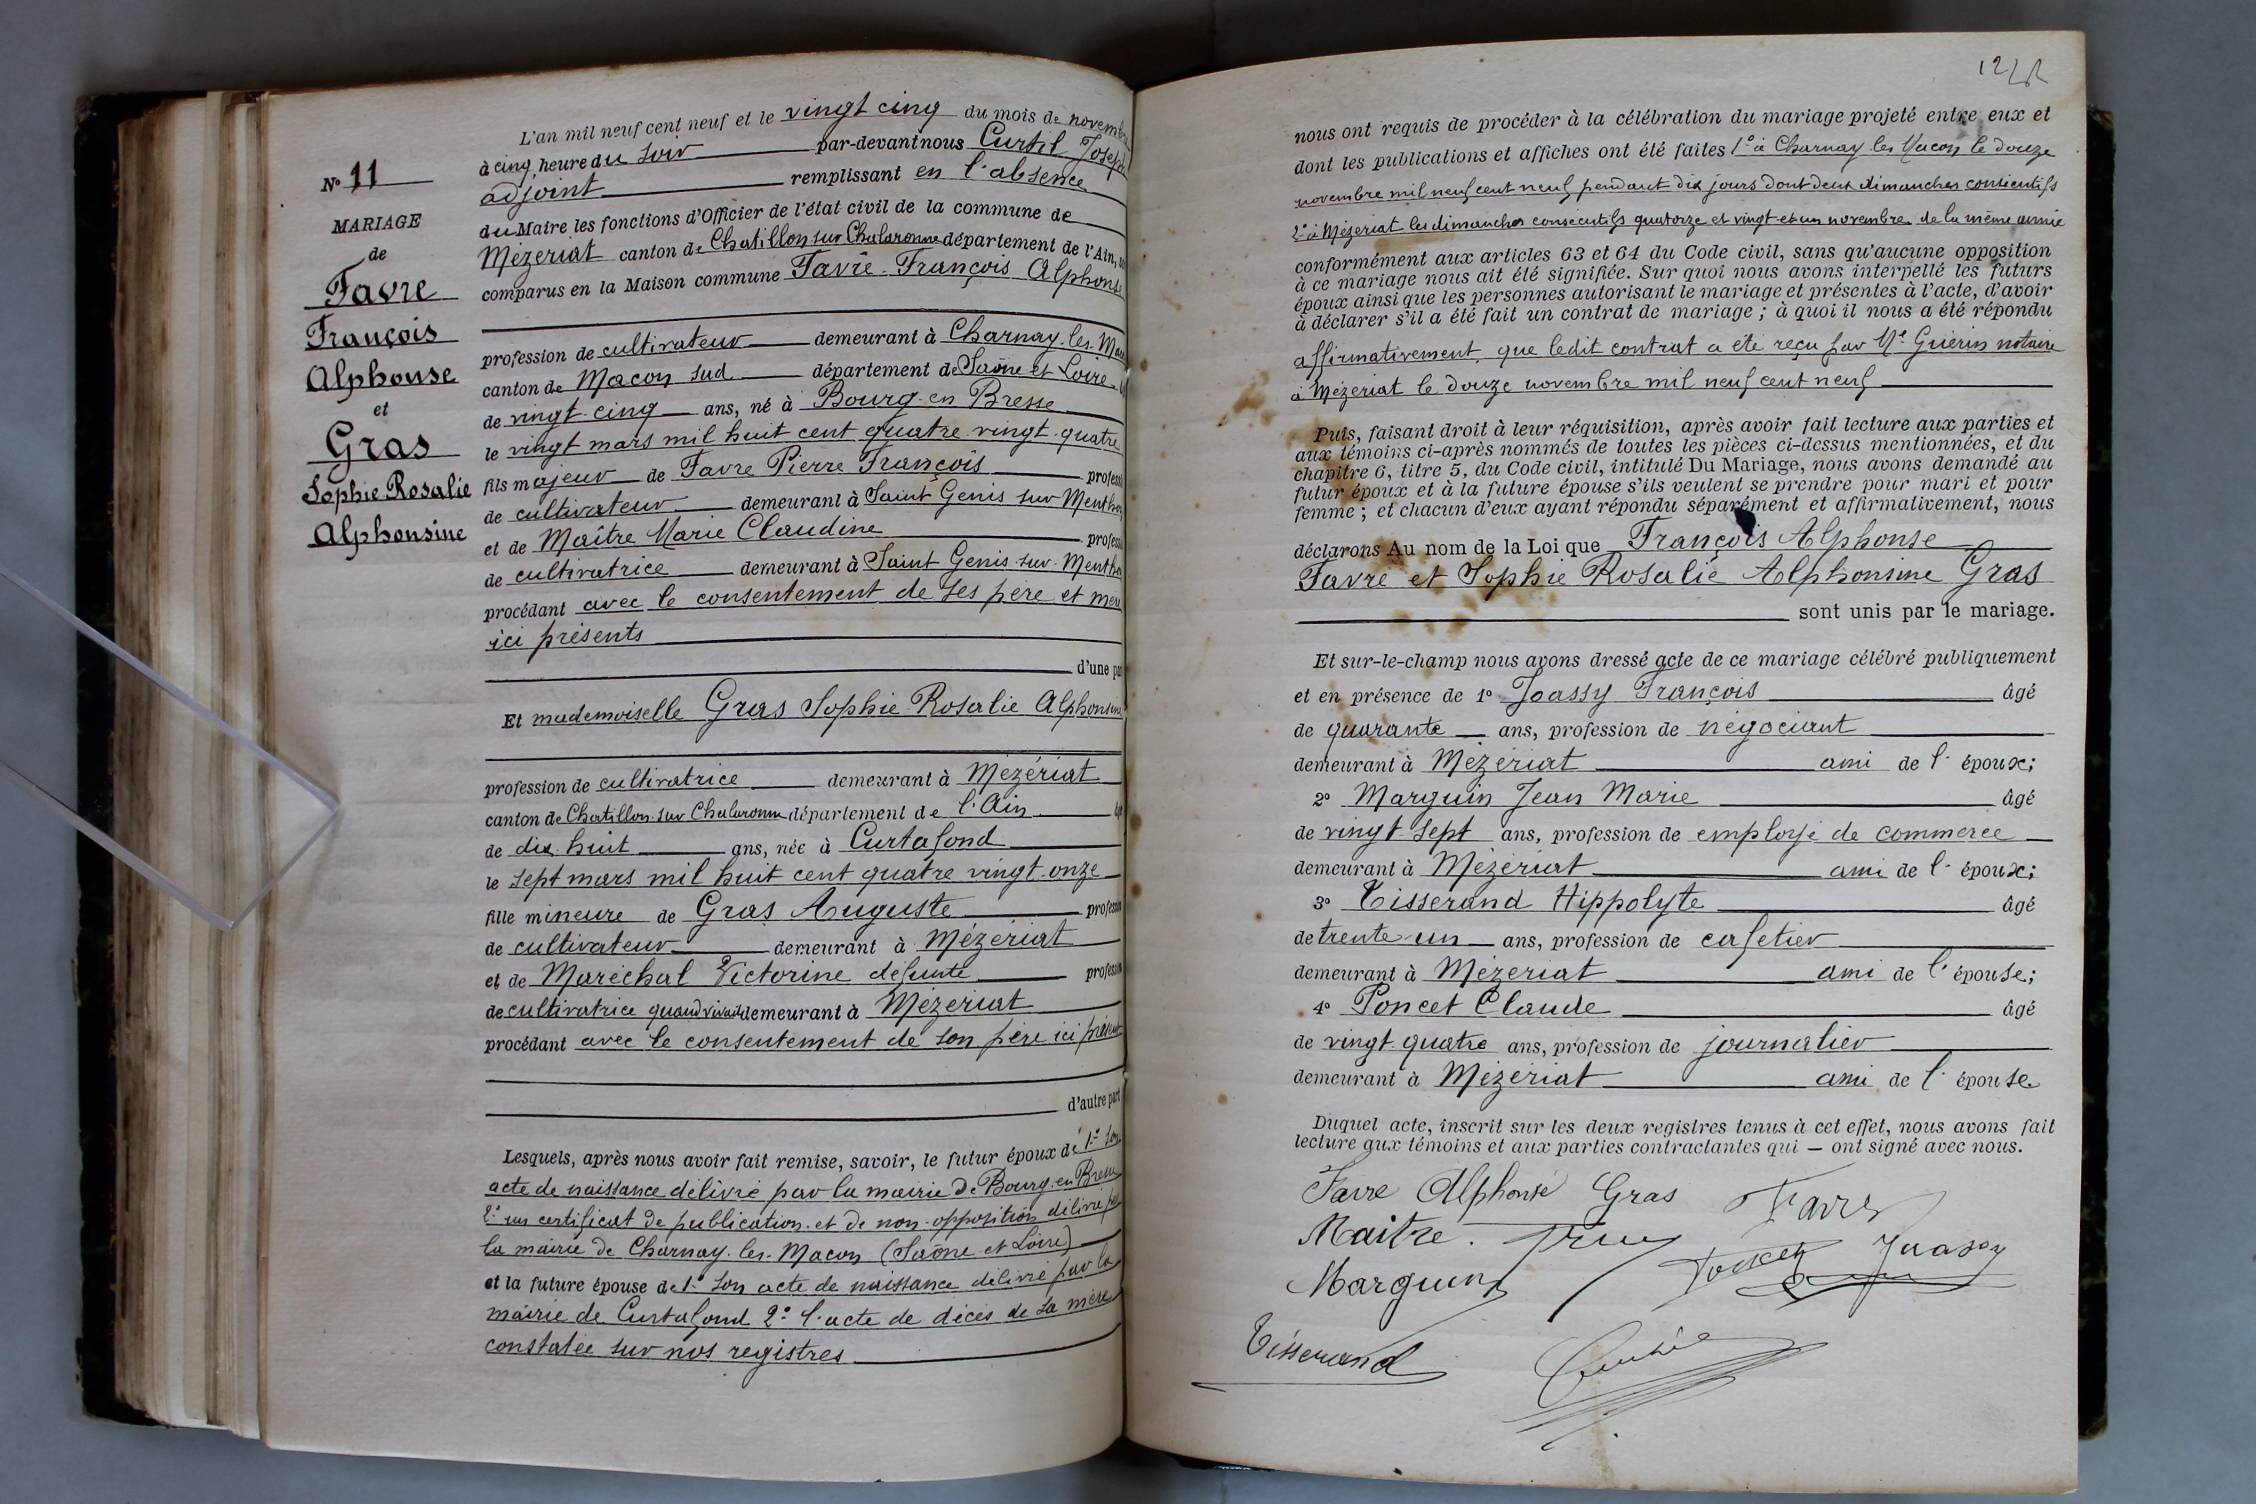 L'an mil neuf cent neuf et le vingt cinq du mois de novembre
à cinq heure du soir par-devant nous Curtil Joseph
adjoint remplissant en l'absence
du Maire les fonctions d'Officier de l'état civil de la commune de
Mézériat canton de Chatillon sur Chalaronne département de l'Ain, ont
comparus en la Maison commune Favre François Alphonse
profession de cultivateur demeurant à Charnay-les-Macon
canton de Macon sud département de Saône et Loire
de vingt-cinq ans, né à Bourg-en Bresse
le vingt mars mil huit cent quatre vingt-quatre
fils majeur de Favre Pierre François profession
de cultivateur demeurant à Saint Genis sur Menthon
et de Maître Marie Claudine profession
de cultivatrice demeurant à Saint Genis-sur-Menthon
procédant avec le consentement de ses père et mère
ici présents
d'une part
Et mademoiselle Gras Sophie Rosalie Alphonsine
profession de cultivatrice demeurant à Mézériat
canton de Chatillon-sur Chalaronne département de l'Ain âgée
de dix-huit ans, née à Curtafond
le sept mars mil huit cent quatre vingt-onze
fille mineure de Gras Auguste profession
de cultivateur demeurant à Mézériat
et de Maréchal Victorine defunte profession
de cultivatrice quand vivait demeurant à Mézériat
procédant avec le consentement de son père ici présent
d'autre part
Lesquels, après nous avoir fait remise, savoir, le futur époux de 1º son
acte de naissance délivré par la mairie de Bourg-en Bresse
2º un certificat de publication et de non-opposition délivré par
la mairie de Charnay-les-Macon (Saône-et Loire)
et la future épouse de 1º son acte de naissance délivré par la
mairie de Curtafond 2º l'acte de décès de sa mère
constatée sur nos registres
Nº 11
MARIAGE
de
Favre
François
Alphonse
et
Gras
Sophie Rosalie
Alphonsine
12
nous ont requis de procéder à la célébration du mariage projeté entre eux et
dont les publications et affiches ont été faites 1º à Charnay les Macon le douze
novembre mil neuf cent neuf pendant dix jours dont deux dimanches consécutifs
2º à Mézériat les dimanches consécutifs quatorze et vingt-et-un novembre de la même année
conformément aux articles 63 et 64 du Code civil, sans qu'aucune opposition
à ce mariage nous ait été signifiée. Sur quoi nous avons interpellé les futurs
époux ainsi que les personnes autorisant le mariage et présentes à l'acte, d'avoir
à déclarer s'il a été fait un contrat de mariage ; à quoi il nous a été répondu
affirmativement, que ledit contrat a été reçu par Me Guérin notaire
à Mézériat le douze novembre mil neuf cent neuf
Puis, faisant droit à leur réquisition, après avoir fait lecture aux parties et
aux témoins ci-après nommés de toutes les pièces ci-dessus mentionnées, et du
chapitre 6, titre 5, du Code civil, intitulé Du Mariage, nous avons demandé au
futur époux et à la future épouse s'ils veulent se prendre pour mari et pour
femme ; et chacun d'eux ayant répondu séparément et affirmativement, nous
déclarons Au nom de la Loi que François Alphonse
Favre et Sophie Rosalie Alphonsine Gras
sont unis par le mariage.
Et sur-le-champ nous avons dressé acte de ce mariage célébré publiquement
et en présence de 1º Joassy François âgé
de quarante ans, profession de négociant
demeurant à Mézériat ami de l'époux;
2º Marguin Jean Marie âgé
de vingt-sept ans, profession de employé de commerce
demeurant à Mézériat ami de l'époux;
3º Tisserand Hippolyte âgé
de trente-un ans, profession de cafetier
demeurant à Mézériat ami de l'épouse;
4º Poncet Claude âgé
de vingt-quatre ans, profession de journalier
demeurant à Mézériat ami de l'épouse
Duquel acte, inscrit sur les deux registres tenus à cet effet, nous avons fait
lecture aux témoins et aux parties contractantes qui — ont signé avec nous.
Favre Alphonse Gras Favre
Maitre. Poncet Joassy
Marguin
Tisserand